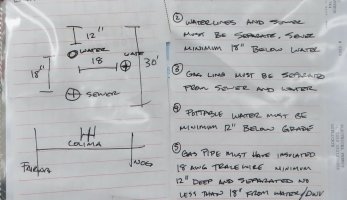 12"
WATER
GAS
18
30'
18"
SEWER
COLIMA
NOGS
② WATERLINES AND SEWER
MUST BE SEPARATE, SEWER
MINIMUM 18" BELOW WATER
③ GAS LINE MUST BE SEPARATED
FROM SEWER AND WATER
④ POTTABLE WATER MUST BE
MINIMUM 12" BELOW GRADE
⑤ GAS PIPE MUST HAVE INSULATED
18 AWG TRACEWIRE MINIMUM
12" DEEP AND SEPARATED NO
LESS THAN 18" FROM WATER/DWV